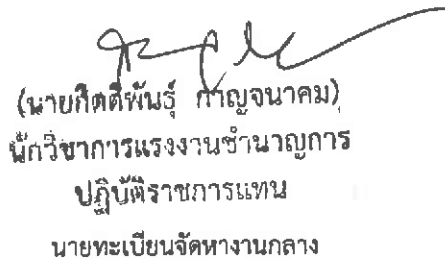 (นายกิตติพันธุ์ กาญจนาคม)
นักวิชาการแรงงานชำนาญการ
ปฏิบัติราชการแทน
นายทะเบียนจัดหางานกลาง